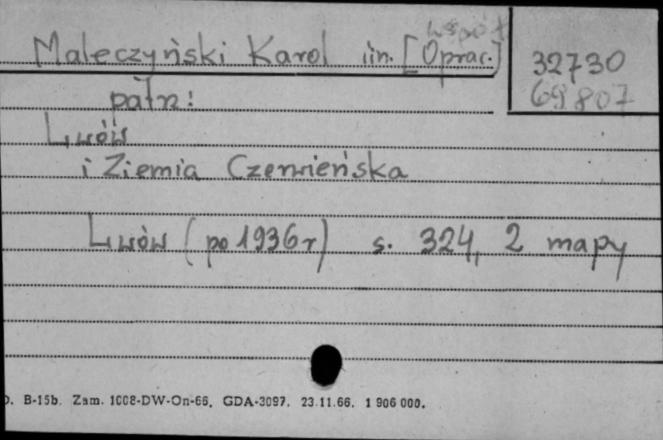 współ
Maleczyński Karol i in. [Oprac.]
32730
69807
patrz:
Lwów
i Ziemia Czerwieńska
Lwów (po 1936 r) s. 324, 2 mapy
B-15b. Zam. 1008-DW-On-66. GDA-3097. 23.11.66. 1 906 000.